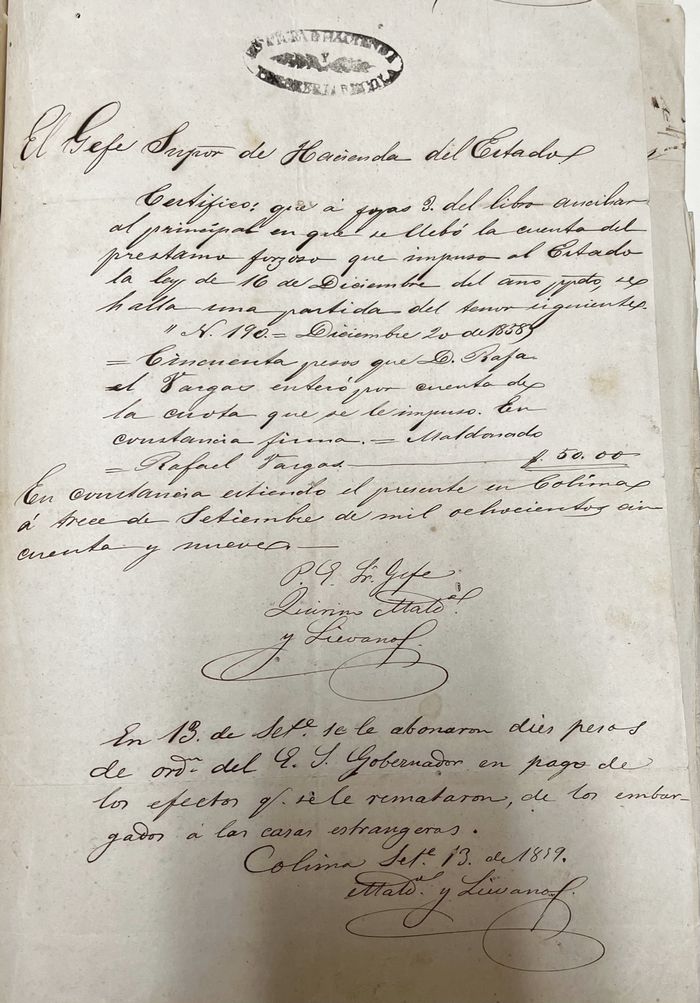 El Gefe Supor de Hacienda del Estado
Certifico: que á fojas 3. del libro auciliar
al principal en que se llebó la cuenta del
prestamo forzoso que impuso al Estado
la ley de 16 de Diciembre del año ppdo, se
halla una partida del tenor siguiente.
" N. 190. = Diciembre 20 de 1858
= Cincuenta pesos que D. Rafa
el Vargas enteró por cuenta de
la cuota que se le impuso. En
constancia firma. = Maldonado
= Rafael Vargas. $. 50.00
En constancia estiendo el presente en Colima
á trece de Setiembre de mil ochocientos cin
cuenta y nueve.
P. E. Sr. Gefe
Quirino Maldo.
y Lievano
En 13. de Sete. se le abonaron dies pesos
de ordn. del E. S. Gobernador en pago de
los efectos q. se le remataron, de los embar-
gados á las casas estrangeras.
Colima Sete. 13. de 1859.
Maldo. y Lievano.